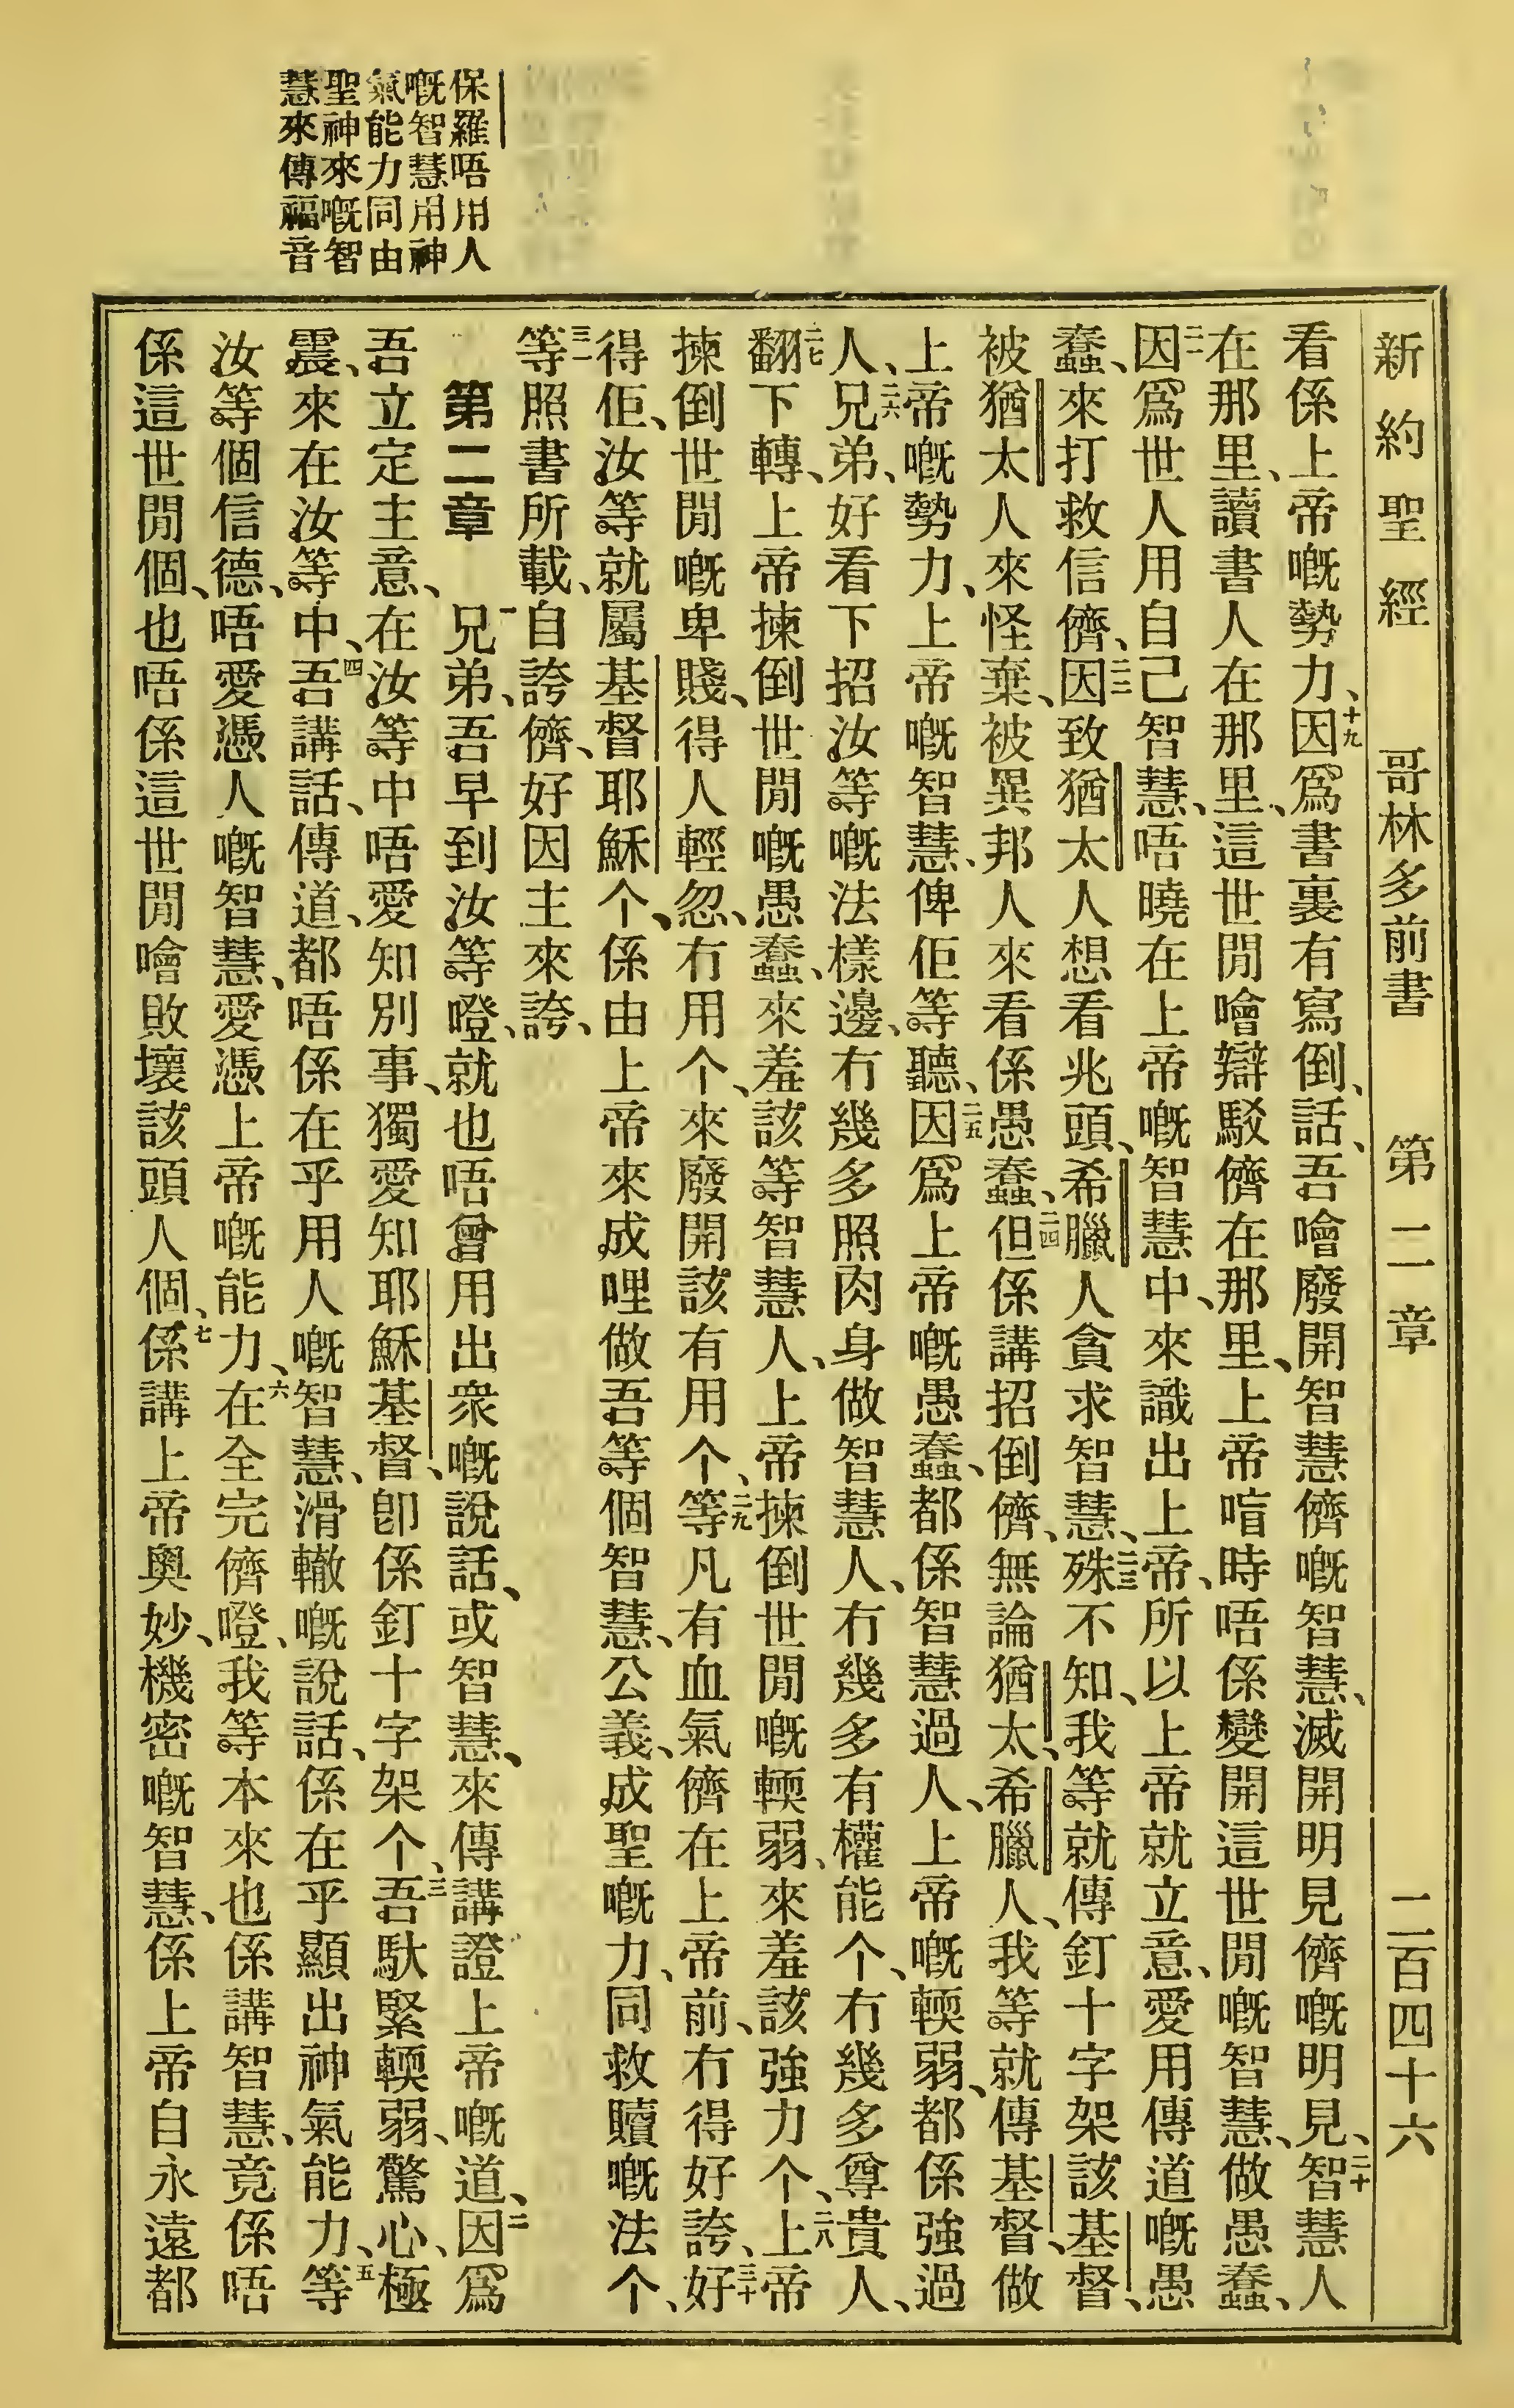 新約聖經 哥林多前書 第二章 二百四十六
看係上帝嘅勢力、十九因爲書裏有寫倒、話、吾噲廢開智慧儕嘅智慧、滅開明見儕嘅明見、二十智慧人
在那里、讀書人在那里、這世間噲辯駁儕在那里、上帝唁時唔係變開這世間嘅智慧、做愚蠢、
二一因爲世人用自己智慧、唔曉在上帝嘅智慧中、來識出上帝、所以上帝就立意、愛用傳道嘅愚
蠢、來打救信儕、二二因致猶太人想看兆頭、希臘人貪求智慧、二三殊不知、我等就傳釘十字架該基督、
被猶太人來怪棄、被異邦人來看係愚蠢、二四但係講招倒儕、無論猶太、希臘人、我等就傳基督、做
上帝嘅勢力、上帝嘅智慧、俾佢等聽、二五因爲上帝嘅愚蠢、都係智慧過人、上帝嘅輭弱、都係強過
人、二六兄弟、好看下招汝等嘅法樣邊、冇幾多照肉身做智慧人、冇幾多有權能个、冇幾多尊貴人、
二七翻下轉、上帝揀倒世間嘅愚蠢、來羞該等智慧人、上帝揀倒世間嘅輭弱、來羞該強力个、二八上帝
揀倒世間嘅卑賤、得人輕忽、冇用个、來廢開該有用个、二九等凡有血氣儕在上帝前、冇得好誇、三十好
得佢、汝等就屬基督耶穌个、係由上帝來成哩做吾等個智慧、公義、成聖嘅力、同救贖嘅法个、
三一等照書所載、自誇儕、好因主來誇、
第二章 一兄弟、吾早到汝等嶝、就也唔曾用出衆嘅說話、或智慧、來傳講證上帝嘅道、二因爲
吾立定主意、在汝等中唔愛知別事、獨愛知耶穌基督、卽係釘十字架个、三吾馱緊輭弱、驚心、極
震、來在汝等中、四吾講話、傳道、都唔係在乎用人嘅智慧、滑轍嘅說話、係在乎顯出神氣能力、五等
汝等個信德、唔愛憑人嘅智慧、愛憑上帝嘅能力、六在全完儕嶝、我等本來也係講智慧、竟係唔
係這世間個、也唔係這世間噲敗壞該頭人個、七係講上帝奧妙、機密嘅智慧、係上帝自永遠都
保羅唔用人
嘅智慧用神
氣能力同由
聖神來嘅智
慧來傳福音